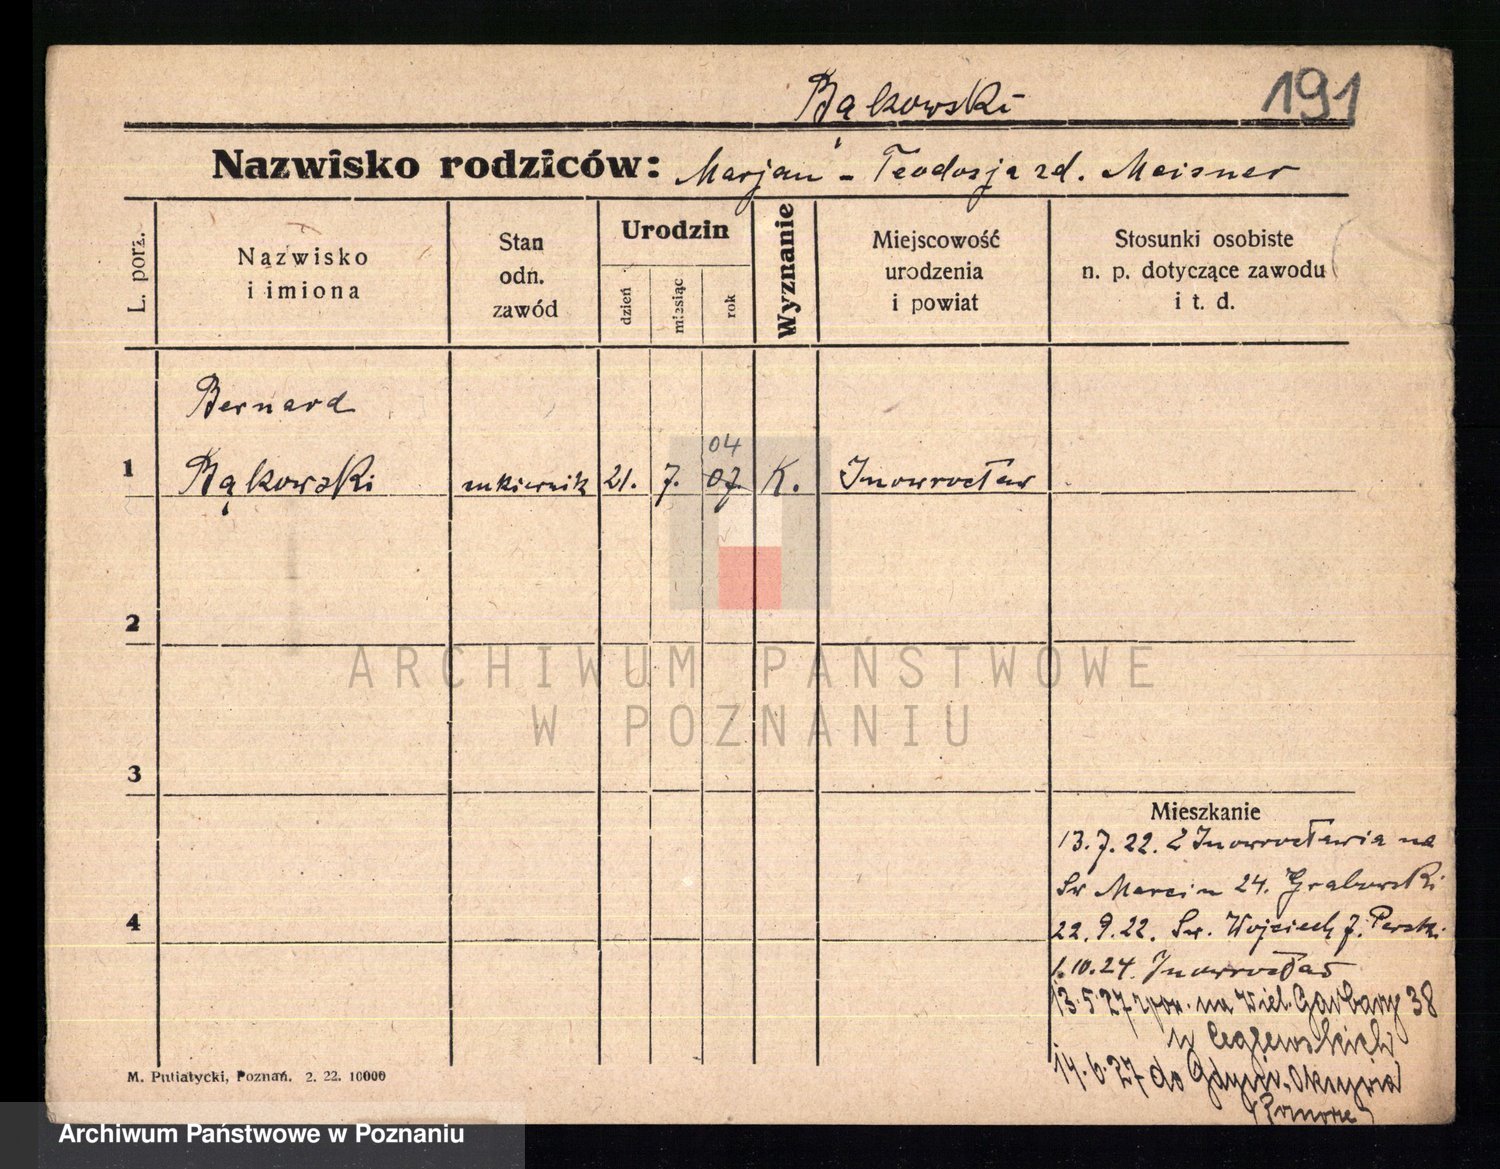 Bąkowski
191
Nazwisko rodziców: Marjan - Teodosja zd. Meisner
L. porz.
Nazwisko
i imiona
Stan
odn.
zawód
Urodzin
dzień
miesiąc
rok
Wyznanie
Miejscowość
urodzenia
i powiat
Stosunki osobiste
n. p. dotyczące zawodu
i t. d.
Bernard
04
1 Bąkowski cukiernik 21. 7. 07. K. Inowrocław
2
3
4
ARCHIWUM PAŃSTWOWE
W POZNANIU
Mieszkanie
13.7.22. z Inowrocławia na
Św Marcin 24. Grabowski
22.9.22. Św. Wojciech 7.
1.10.24. Inowrocław
13.5.27 na Wiel. Garbary 38
u
14.6.27 do Gdyni
M. Putiatycki, Poznań. 2. 22. 10000
Archiwum Państwowe w Poznaniu